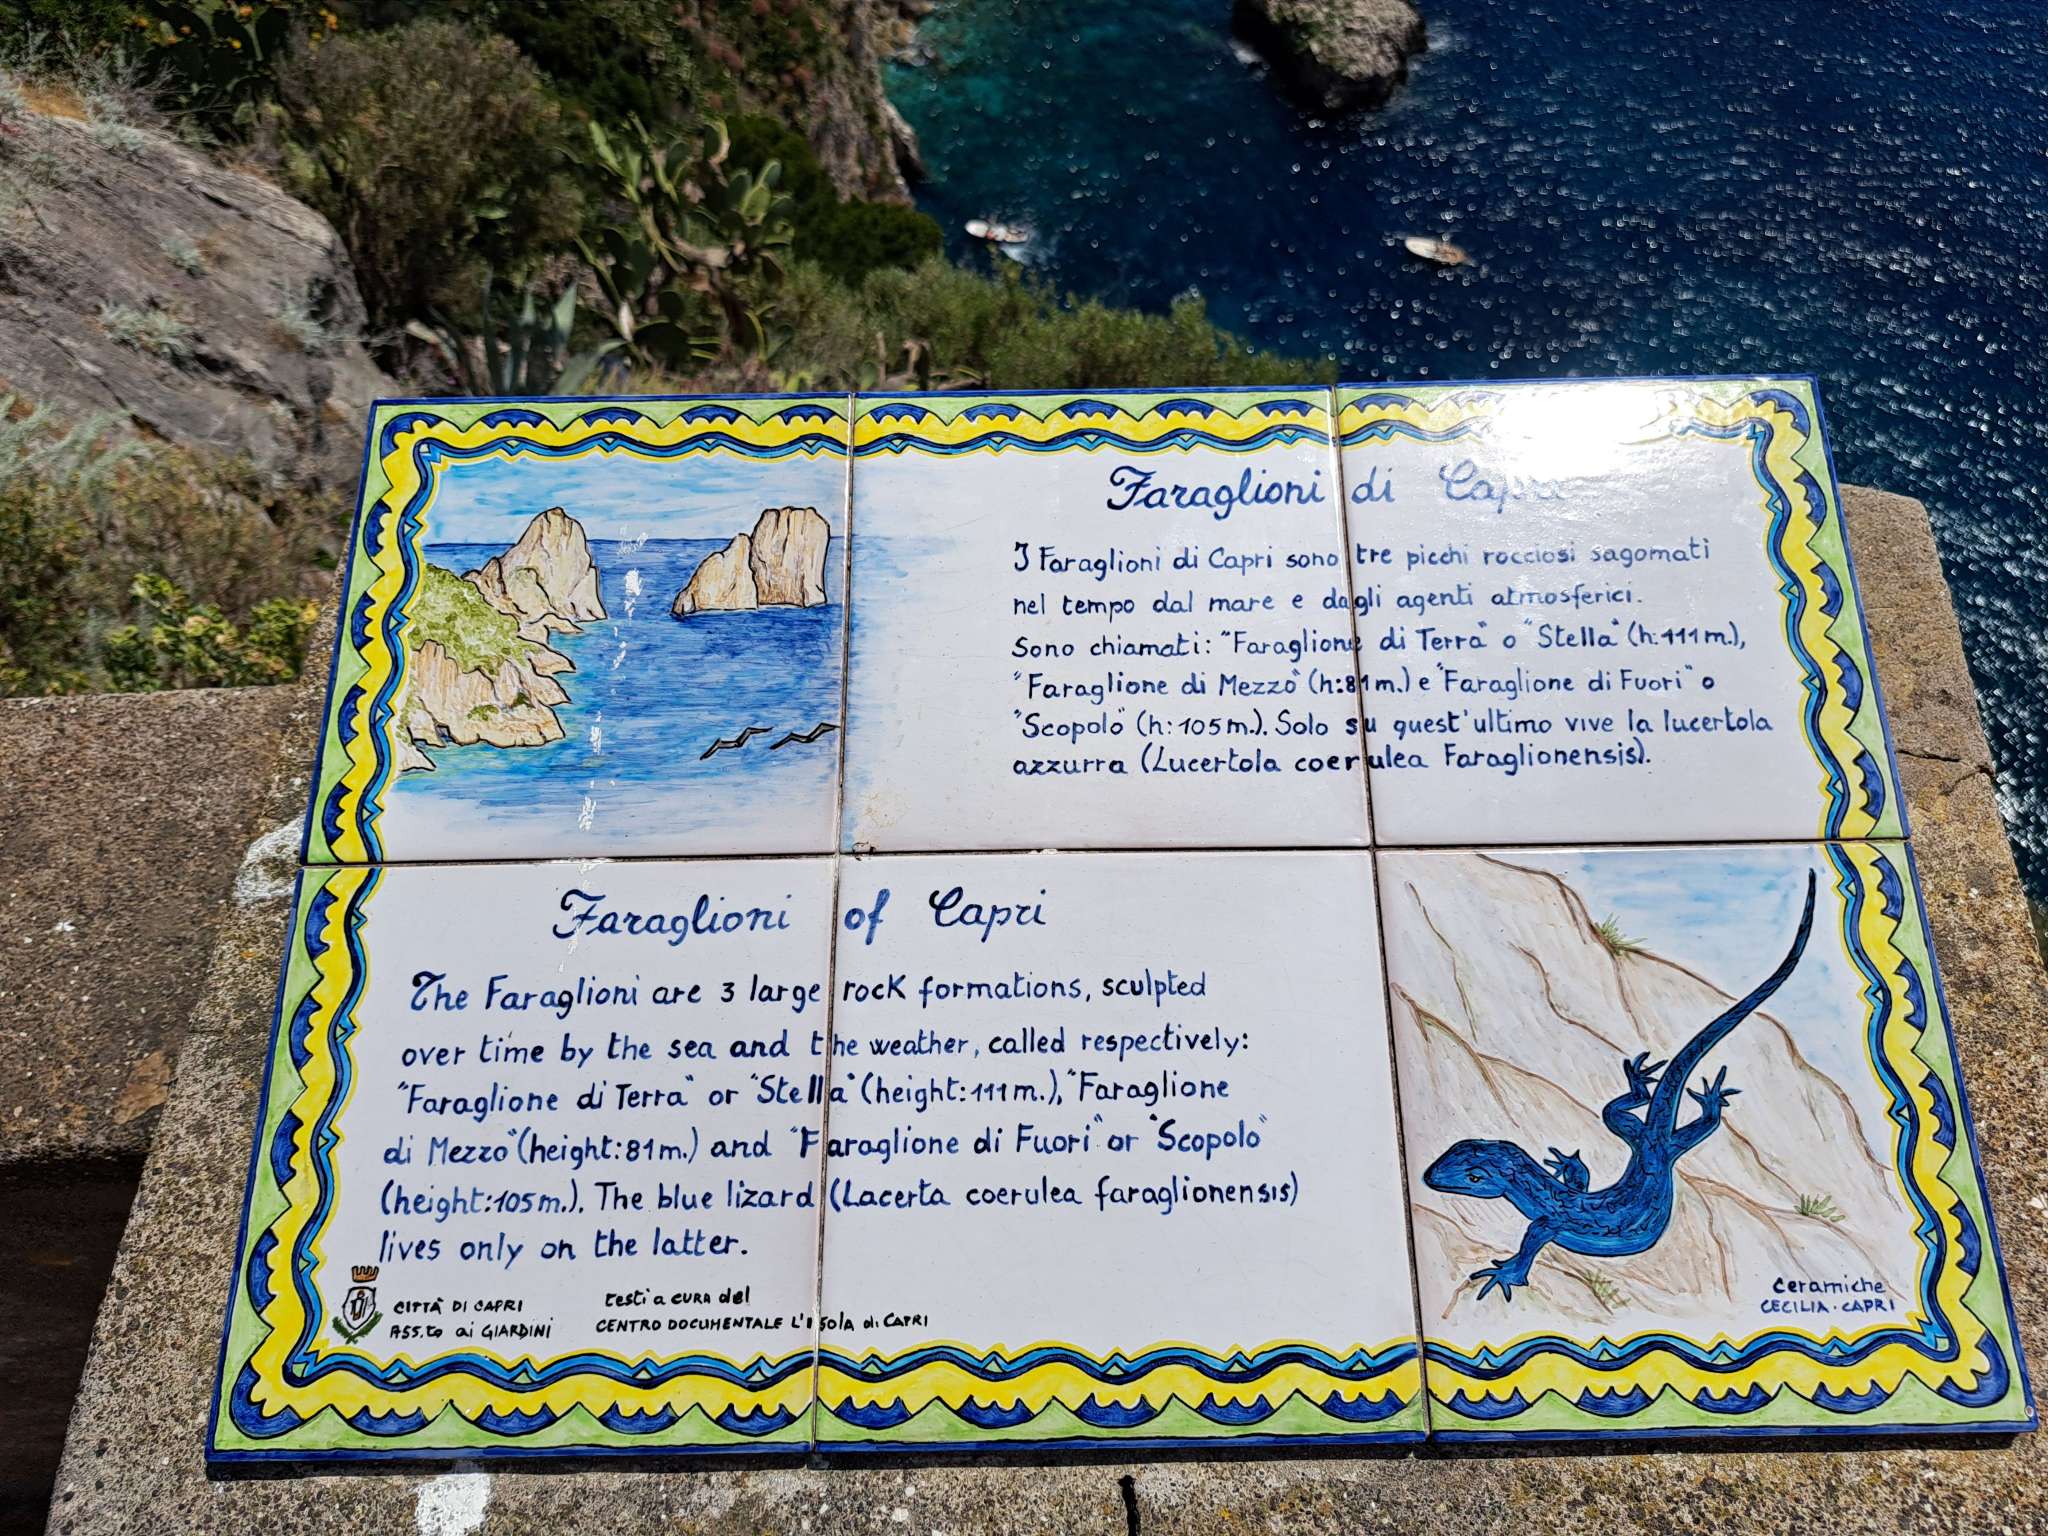 Faraglioni di Capri
I Faraglioni di Capri sono tre picchi rocciosi sagomati
nel tempo dal mare e dagli agenti atmosferici.
Sono chiamati: "Faraglione di Terra" o "Stella" (h:111m.),
"Faraglione di Mezzo" (h:81m.) e "Faraglione di Fuori" o
"Scopolo" (h:105m.). Solo su quest'ultimo vive la lucertola
azzurra (Lucertola coerulea Faraglionensis).
Faraglioni of Capri
The Faraglioni are 3 large rock formations, sculpted
over time by the sea and the weather, called respectively:
"Faraglione di Terra" or "Stella" (height:111m.), "Faraglione
di Mezzo" (height:81m.) and "Faraglione di Fuori" or "Scopolo"
(height:105m.). The blue lizard (Lacerta coerulea faraglionensis)
lives only on the latter.
CITTÀ DI CAPRI
ASS.to ai GIARDINI
testi a CURA del
CENTRO DOCUMENTALE L'ISOLA di CAPRI
Ceramiche
CECILIA·CAPRI